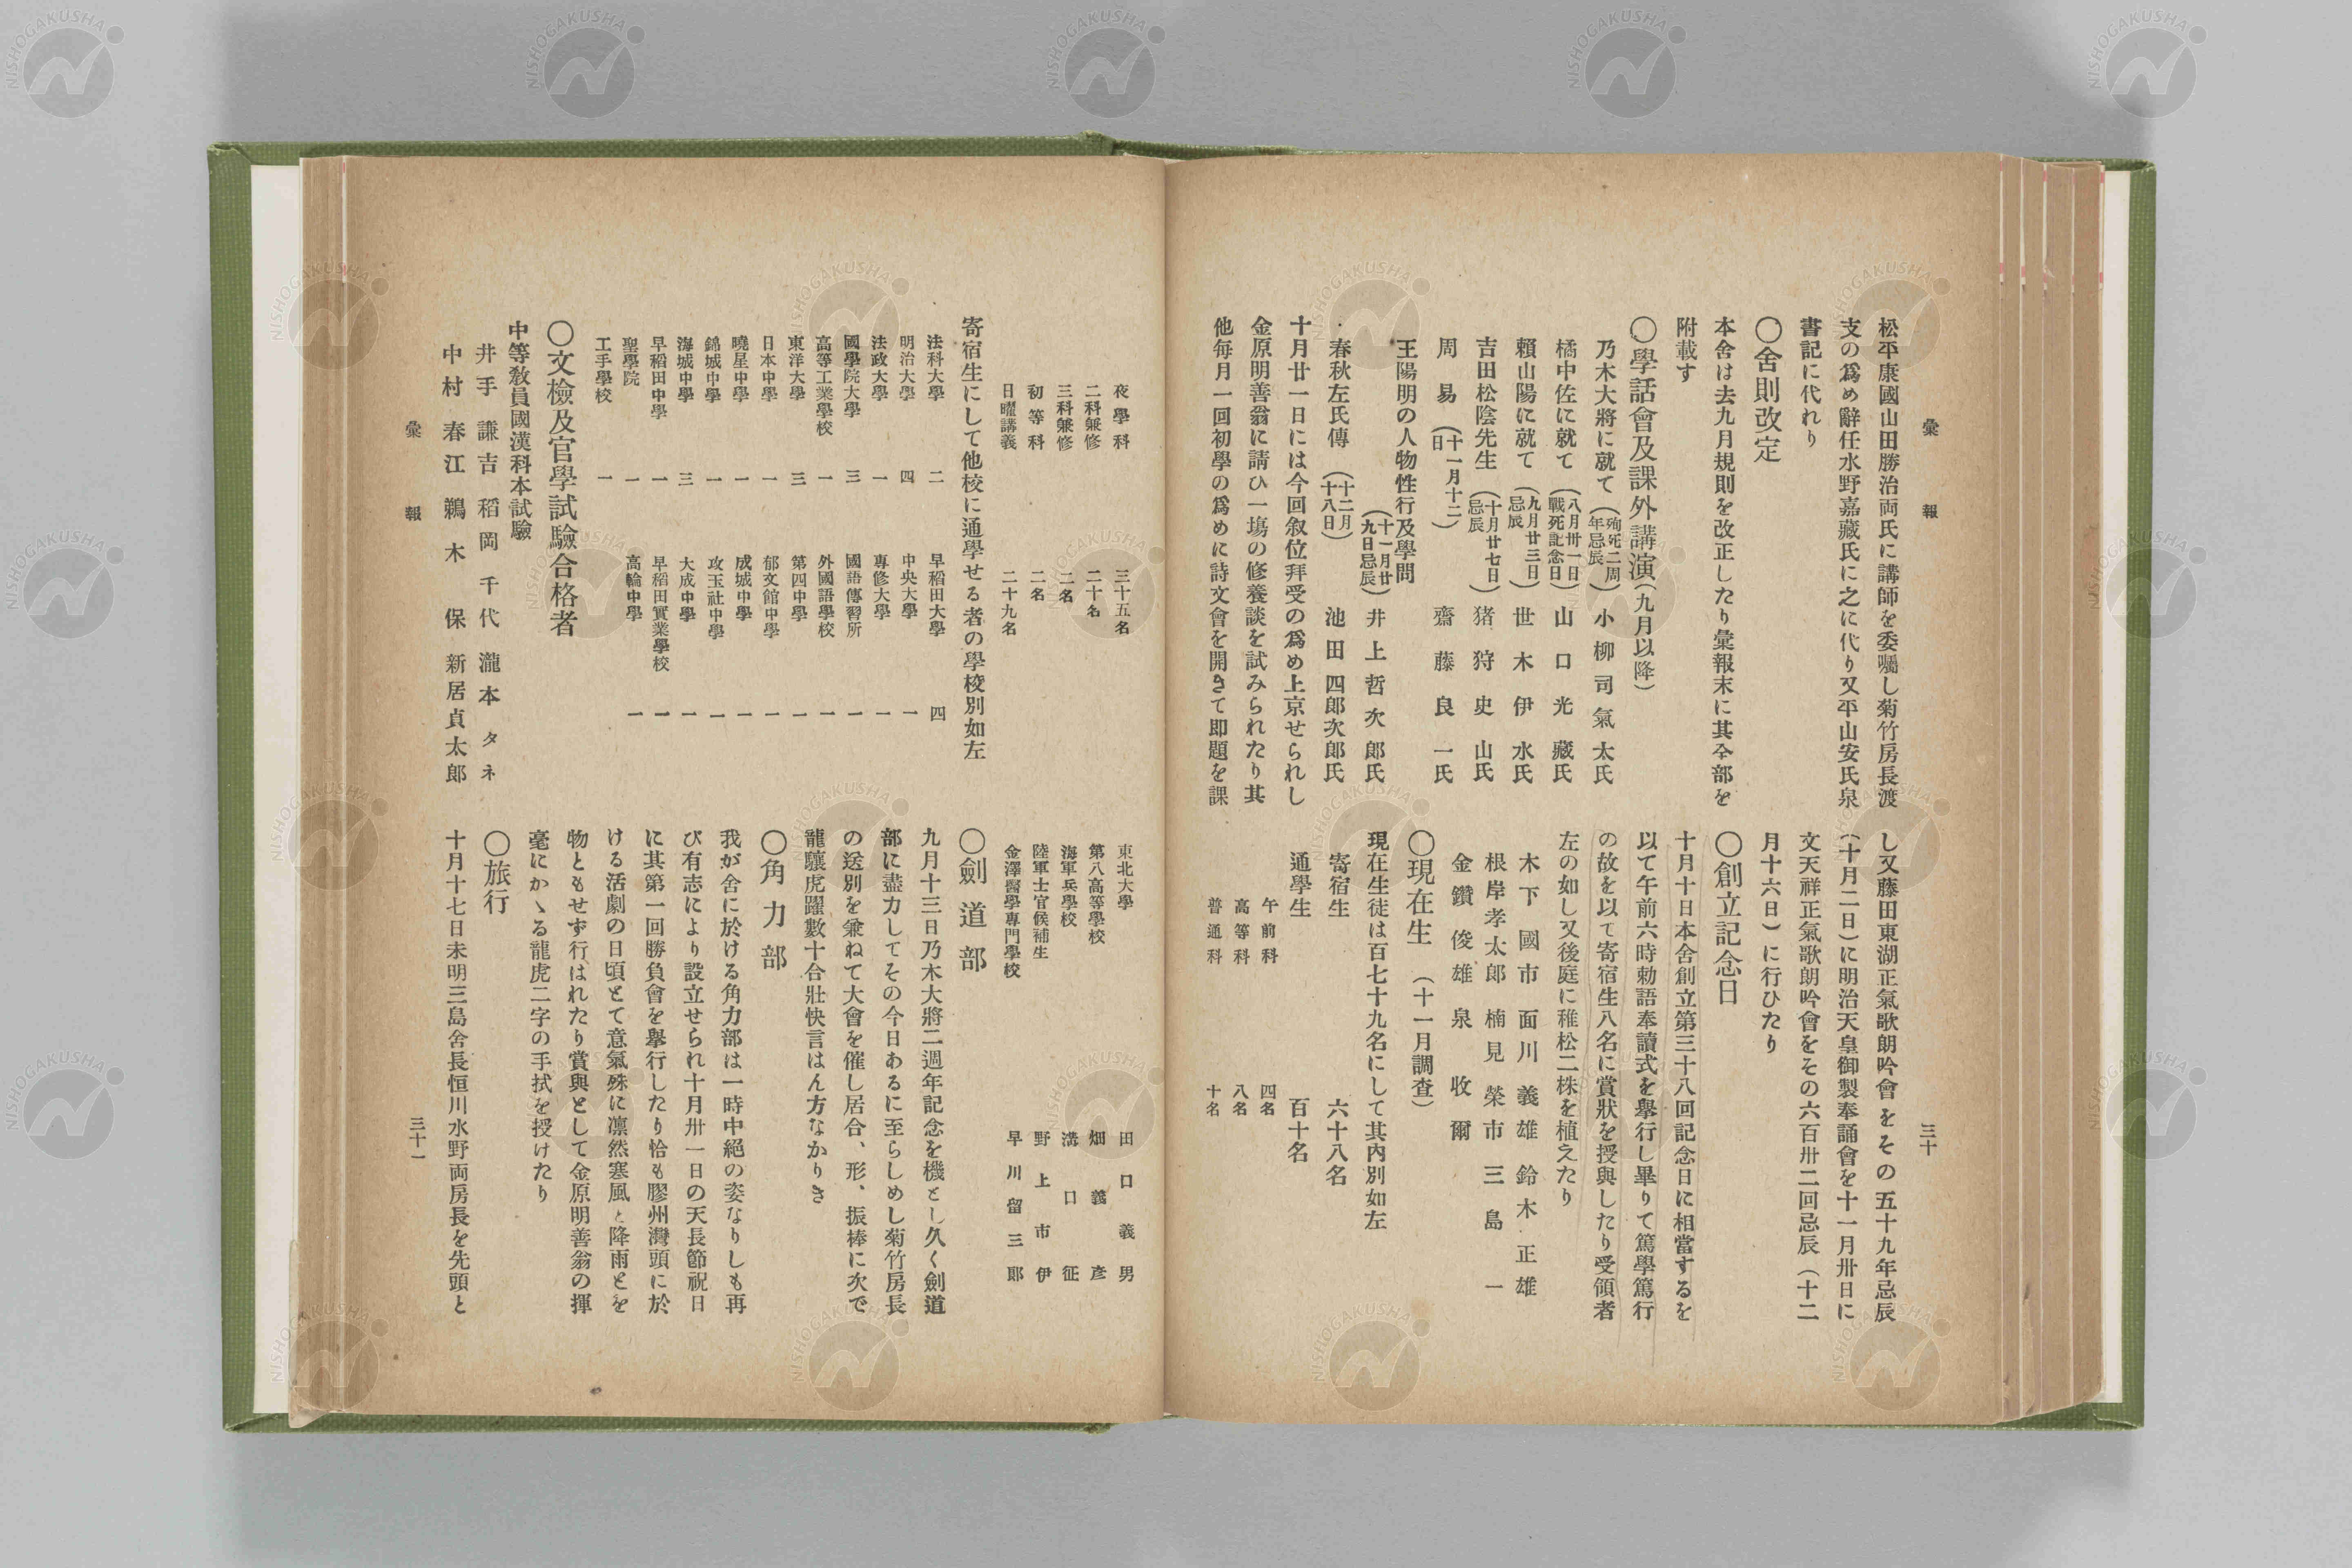 彙報
三十
松平康國山田勝治両氏に講師を委囑し菊竹房長渡
支の爲め辭任水野嘉藏氏に之に代り又平山安氏泉
書記に代れり
〇舍則改定
本舍は去九月規則を改正したり彙報末に其全部を
附載す
〇學話會及課外講演(九月以降)
乃木大將に就て(殉死二周年忌辰)小柳司氣太氏
橘中佐に就て(八月卅一日戰死記念日)山口光藏氏
賴山陽に就て(九月廿三日忌辰)世木伊水氏
吉田松陰先生(十月廿七日忌辰)猪狩史山氏
周易(十一月十二日)齋藤良一氏
王陽明の人物性行及學問
(十一月廿九日忌辰)井上哲次郎氏
春秋左氏傳(十二月十八日)池田四郎次郎氏
十月廿一日には今回叙位拜受の爲め上京せられし
金原明善翁に請ひ一塲の修養談を試みられたり其
他每月一回初學の爲めに詩文會を開きて即題を課
し又藤田東湖正氣歌朗吟會をその五十九年忌辰
(十月二日)に明治天皇御製奉誦會を十一月卅日に
文天祥正氣歌朗吟會をその六百卅二回忌辰(十二
月十六日)に行ひたり
〇創立記念日
十月十日本舍創立第三十八回記念日に相當するを
以て午前六時勅語奉讀式を擧行し畢りて篤學篤行
の故を以て寄宿生八名に賞狀を授與したり受領者
左の如し又後庭に稚松二株を植えたり
木下國市 面川義雄 鈴木正雄
根岸孝太郎 楠見榮市 三島一
金鑽俊雄 泉收爾
〇現在生(十一月調査)
現在生徒は百七十九名にして其內別如左
寄宿生 六十八名
通學生 百十名
午前科 四名
高等科 八名
普通科 十名
夜學科 三十五名
二科兼修 二十名
三科兼修 二名
初等科 二名
日曜講義 二十九名
寄宿生にして他校に通學せる者の學校別如左
法科大學 二 早稻田大學 四
明治大學 四 中央大學 一
法政大學 一 專修大學 一
國學院大學 三 國語傳習所 一
高等工業學校 一 外國語學校 一
東洋大學 三 第四中學 一
日本中學 一 郁文館中學 一
曉星中學 一 成城中學 一
錦城中學 一 攻玉社中學 一
海城中學 三 大成中學 一
早稻田中學 一 早稻田實業學校 一
聖學院 一 高輪中學 一
工手學校 一
〇文檢及官學試驗合格者
中等敎員國漢科本試驗
井手謙吉 稻岡千代 瀧本タネ
中村春江 鵜木保 新居貞太郎
東北大學 田口義男
第八高等學校 畑義彥
海軍兵學校 溝口征
陸軍士官候補生 野上市伊
金澤醫學專門學校 早川留三郎
〇劍道部
九月十三日乃木大將二週年記念を機とし久く劍道
部に盡力してその今日あるに至らしめし菊竹房長
の送別を兼ねて大會を催し居合、形、振棒に次で
龍驤虎躍數十合壯快言はん方なかりき
〇角力部
我が舍に於ける角力部は一時中絕の姿なりしも再
び有志により設立せられ十月卅一日の天長節祝日
に其第一回勝負會を擧行したり恰も膠州灣頭に於
ける活劇の日頃とて意氣殊に凛然寒風と降雨とを
物ともせず行はれたり賞與として金原明善翁の揮
毫にかゝる龍虎二字の手拭を授けたり
〇旅行
十月十七日未明三島舍長恒川水野両房長を先頭と
彙報
三十一